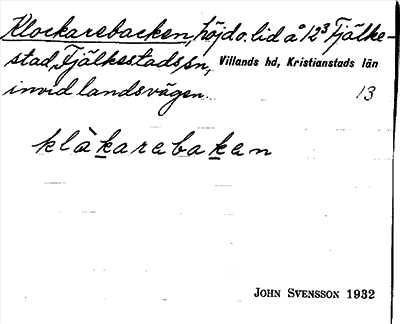 Klockarebacken, höjd o. lid å 12³ Fjälke-
stad, Fjälkestads sn, Villands hd, Kristianstads län
invid landsvägen. 13
klàkarebakan
JOHN SVENSSON 1932